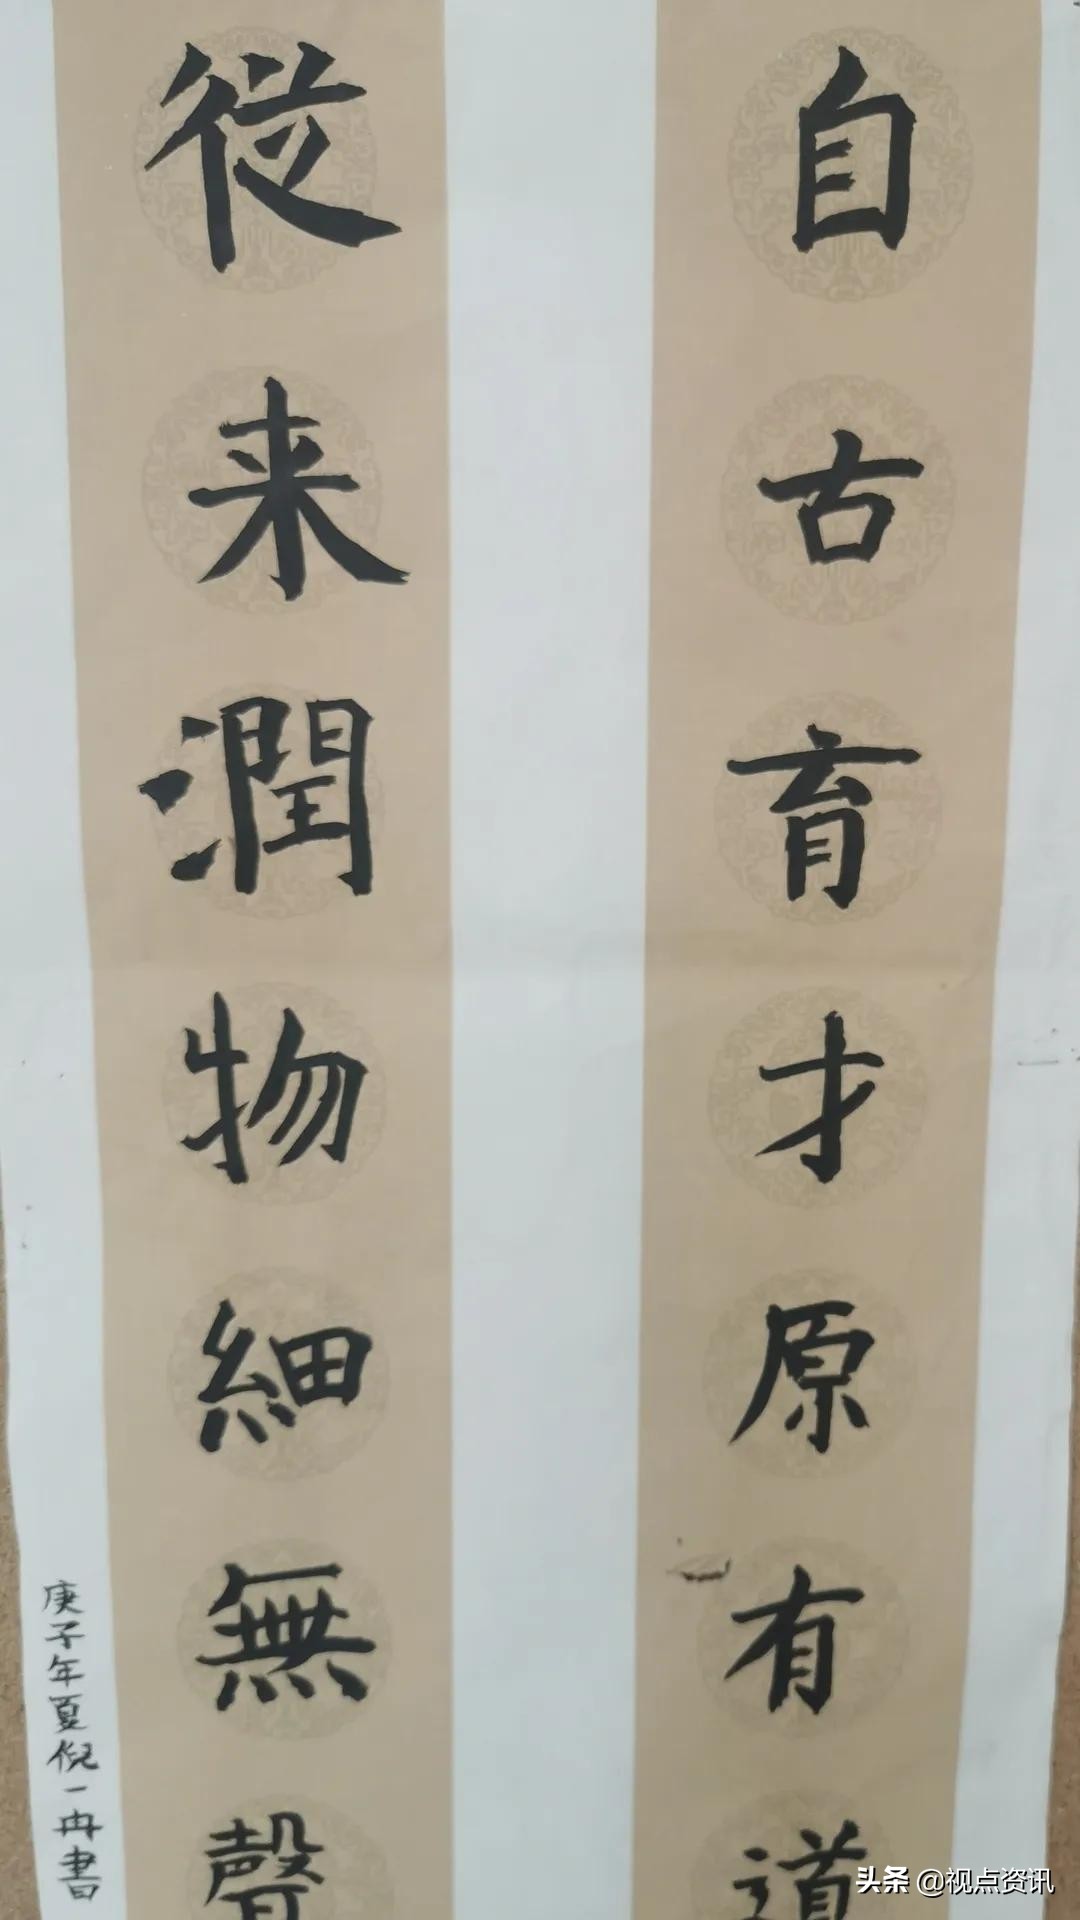 自古育才原有道
従来潤物細無聲
庚子年夏倪一冉書
头条 @视点资讯